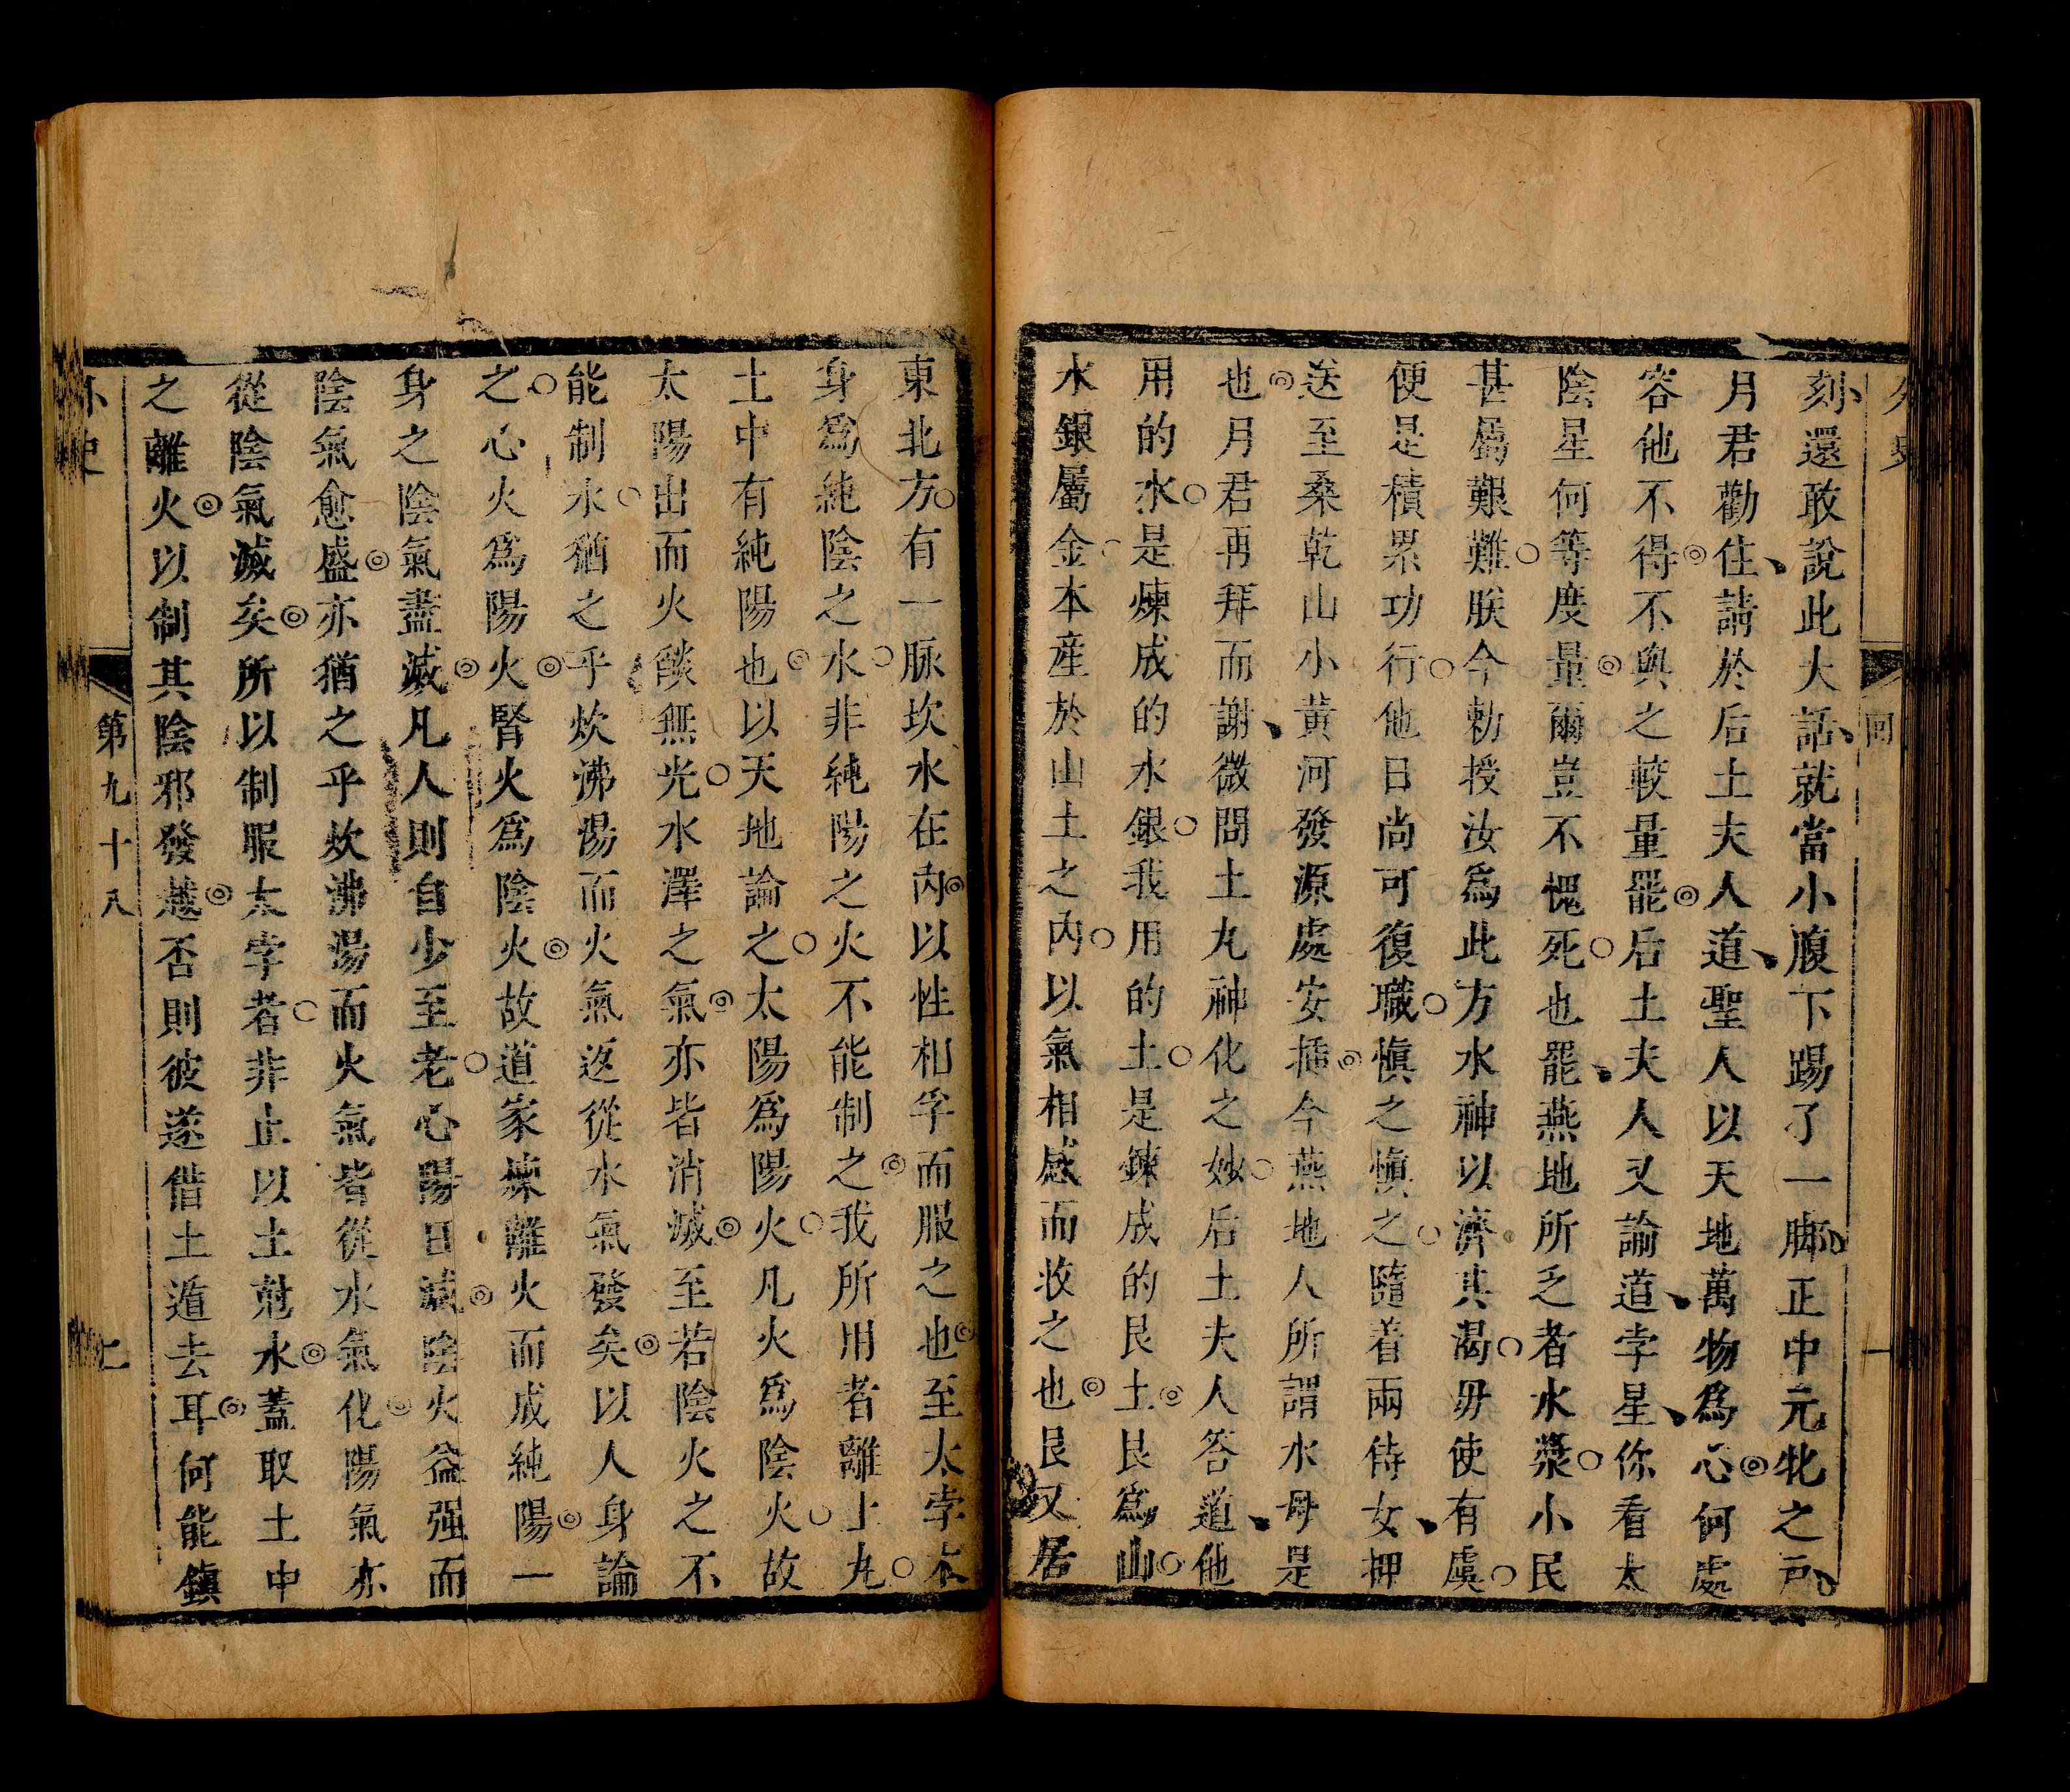 外史
回
一
刻還敢說此大話就當小腹下踢了一脚正中元牝之戸
月君勸住請於后土夫人道聖人以天地萬物爲心何處
容他不得不與之較量罷后土夫人又諭道孛星你看太
陰星何等度量爾豈不愧死也罷燕地所乏者水漿小民
甚屬艱難朕今勅授汝爲此方水神以濟其渴毋使有虞
便是積累功行他日尚可復職愼之愼之隨着兩侍女押
送至桑乾山小黃河發源處安插今燕地人所謂水母是
也月君再拜而謝微問土丸神化之妙后土夫人答道他
用的水是煉成的水銀我用的土是鍊成的艮土艮爲山
水銀屬金本産於山土之內以氣相感而收之也艮又居
東北方有一脉坎水在內以性相孚而服之也至太孛本
身爲純陰之水非純陽之火不能制之我所用者離土丸
土中有純陽也以天地論之太陽爲陽火凡火爲陰火故
太陽出而火燄無光水澤之氣亦皆消滅至若陰火之不
能制水猶之乎炊沸湯而火氣返從水氣發矣以人身論
之心火爲陽火腎火爲陰火故道家煉離火而成純陽一
身之陰氣盡滅凡人則自少至老心陽日減陰火益强而
陰氣愈盛亦猶之乎炊沸湯而火氣皆從水氣化陽氣亦
從陰氣滅矣所以制服太孛者非止以土尅水蓋取土中
之離火以制其陰邪發越否則彼遂借土遁去耳何能鎮
外史
第九十八
七